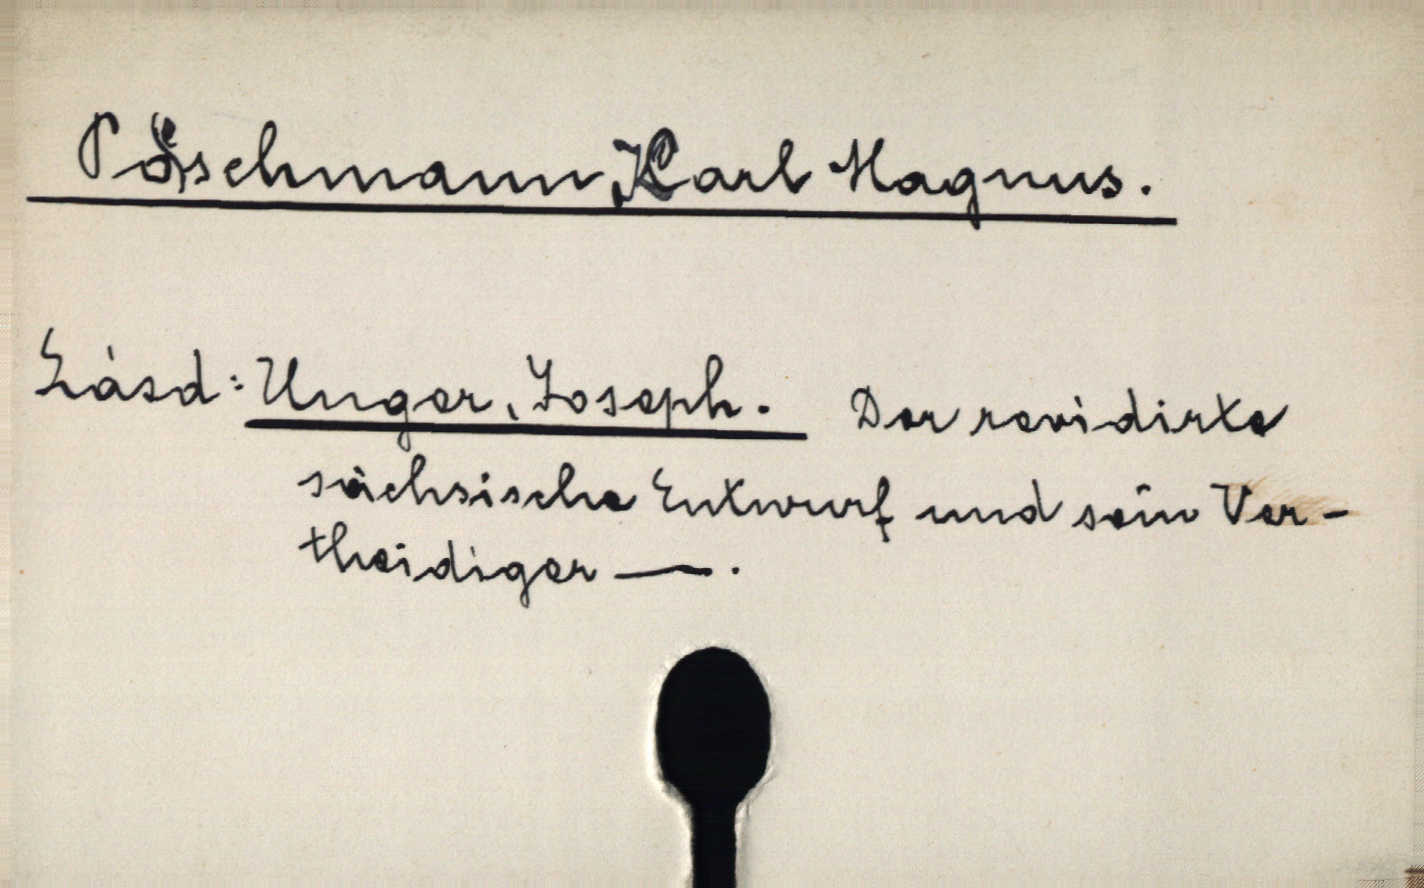 Pöschmann, Karl Magnus.
Lásd: Unger, Joseph. Der revidirte
sächsische Entwurf und sein Ver-
theidiger —.